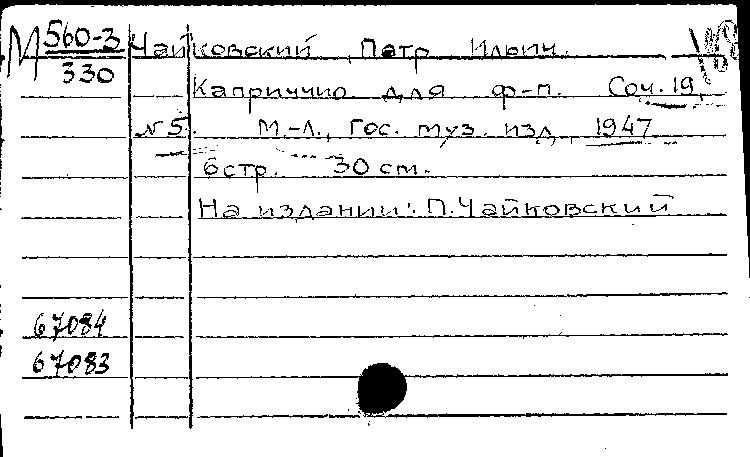 М 560-3
330
Чайковский, Петр Ильич.
Каприччио для ф-п. Соч. 19
№ 5. М.-Л., Гос. муз. изд., 1947
6 стр. 30 cm.
На издании: П. Чайковский
67084
67083